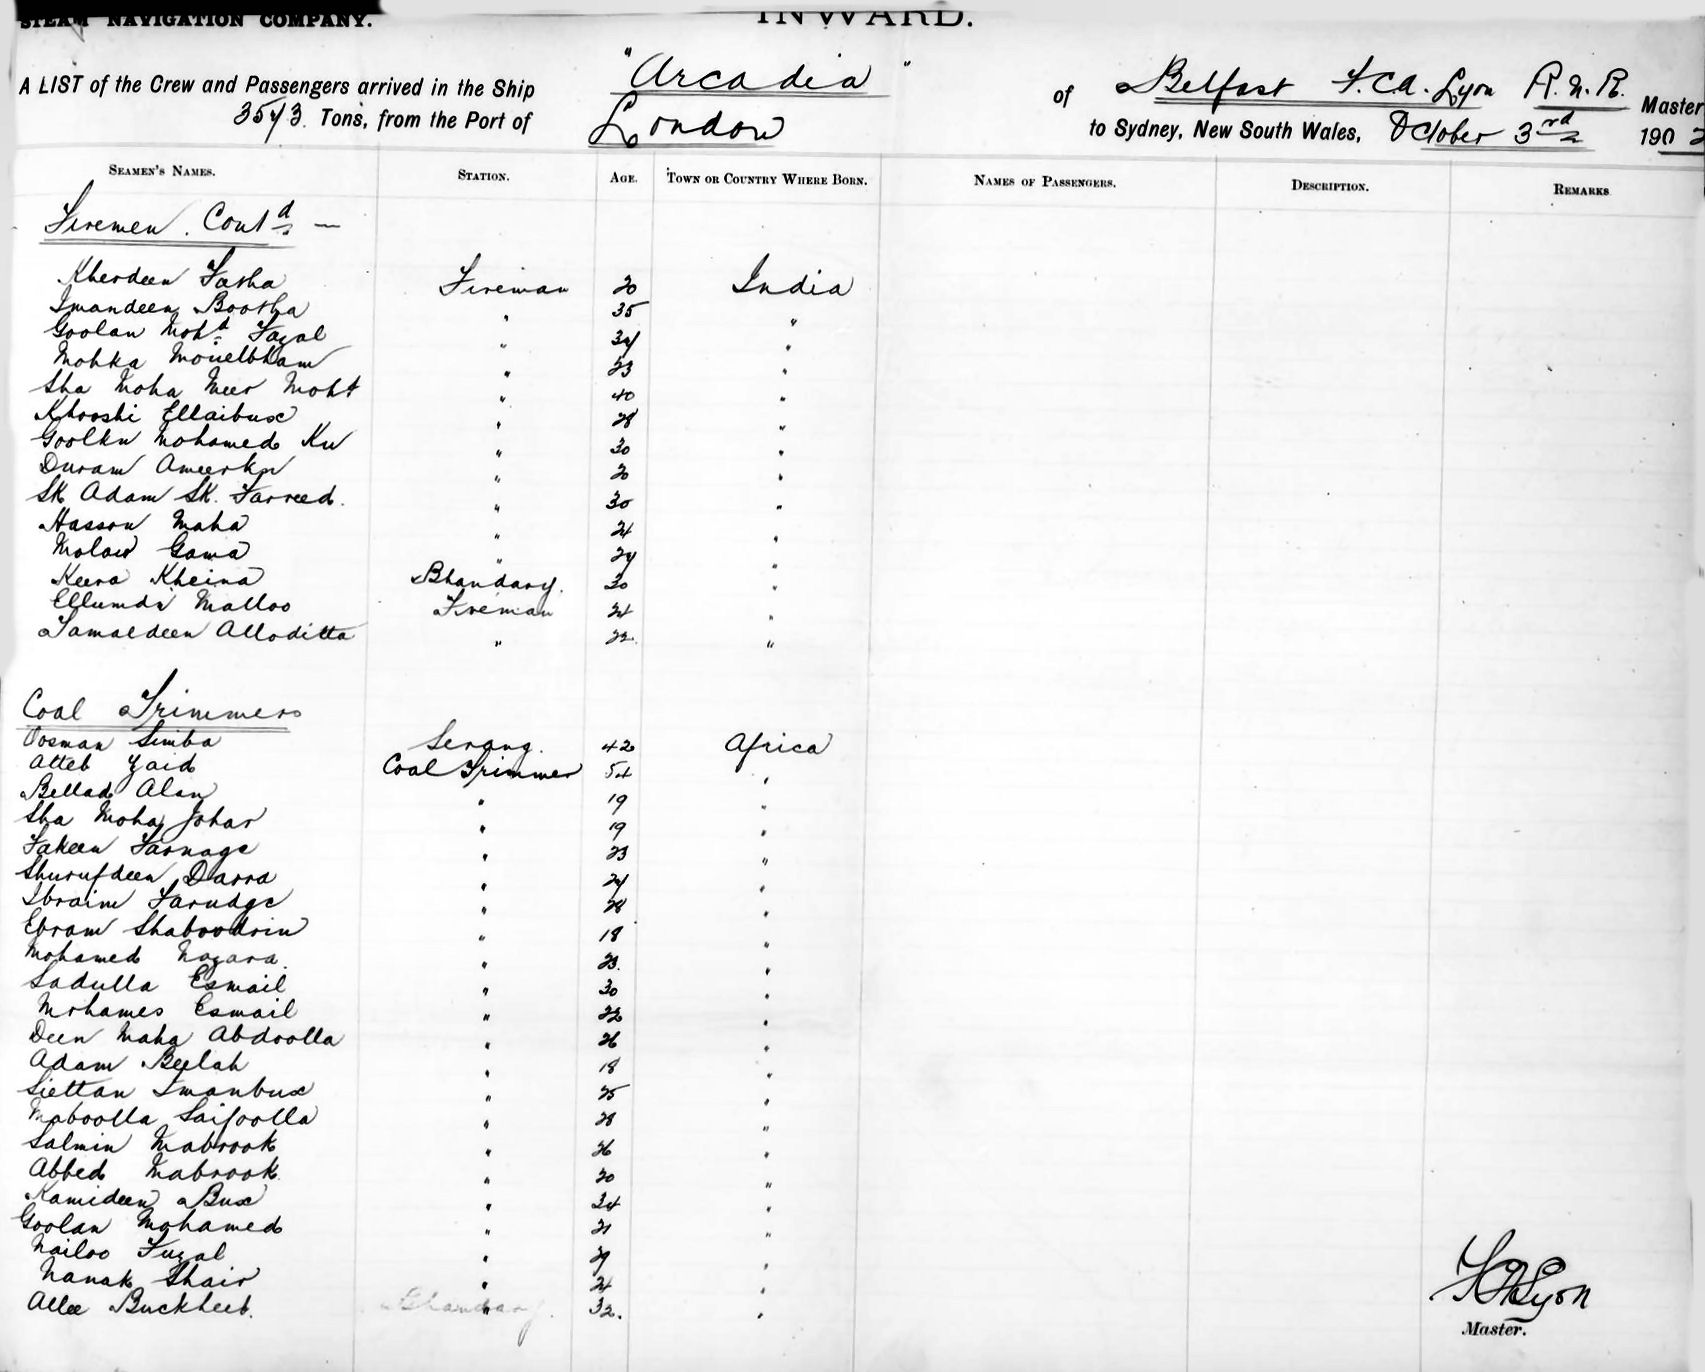 STEAM NAVIGATION COMPANY. INWARD.
A LIST of the Crew and Passengers arrived in the Ship "Arcadia" of Belfast F. C. A. Lyon R.N.R. Master
3573 Tons, from the Port of London to Sydney, New South Wales, October 3rd 1902
SEAMEN'S NAMES. STATION. AGE. TOWN OR COUNTRY WHERE BORN. NAMES OF PASSENGERS. DESCRIPTION. REMARKS
Firemen. Contd —
Kherdeen Fatha Fireman 20 India
Imandeen Bootha " 35 "
Goolan Mohd Fazal " 34 "
Mohka " 23 "
Sha Moha Meer Moht " 40 "
Khooshi Ellaibux " 28 "
Goolkn Mohamed Kn " 30 "
Duram Ameerkn " 20 "
Sk Adam Sk. Farreed. " 30 "
Hasson Maha " 24 "
Molaw Gama " 24 "
Keera Kheina Bhandary. 30 "
Ellumdi Malloo Fireman 24 "
Jamaldeen Alloditta " 22. "
Coal Trimmers
Oosman Simba Serang. 42 Africa
Atteb Zaid Coal Trimmer 54 "
Bellad Alan " 19 "
Sha Moha Johar " 19 "
Fakeen Farnage " 23 "
Shurufdeen Darra " 24 "
Ibraim Farudge " 28 "
Ebram Shaboodrin " 18 "
Mohamed Nagara. " 23. "
Sadulla Esmail " 30 "
Mohames Esmail " 22 "
Deen Maha Abdoolla " 26 "
Adam Beelah " 18 "
Siettan Imanbux " 25 "
Maboolla Saifoolla " 28 "
Salmin Mabrook " 26 "
Abbed Mabrook " 20 "
Kamideen Bux " 34 "
Goolan Mohamed " 21 "
Nailoo Fuzal " 29 "
Nanak Shair " 24 "
Allee Buckheeb. Bhandary. " 32. "
F C A Lyon
Master.